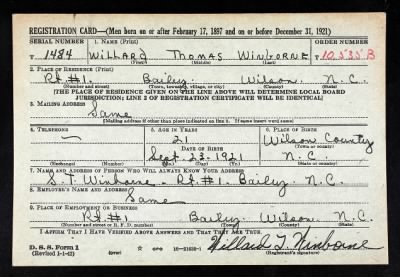 REGISTRATION CARD—(Men born on or after February 17, 1897 and on or before December 31, 1921)
SERIAL NUMBER 1. NAME (Print) ORDER NUMBER
T 1484 WILLARD THOMAS WINBORNE T10,535B
(First) (Middle) (Last)
2. PLACE OF RESIDENCE (Print)
Rt. #1. Bailey Wilson N.C.
(Number and street) (Town, township, village, or city) (County) (State)
[THE PLACE OF RESIDENCE GIVEN ON THE LINE ABOVE WILL DETERMINE LOCAL BOARD
JURISDICTION; LINE 2 OF REGISTRATION CERTIFICATE WILL BE IDENTICAL]
3. MAILING ADDRESS
Same
[Mailing address if other than place indicated on line 2. If same insert word same]
4. TELEPHONE 5. AGE IN YEARS 6. PLACE OF BIRTH
— 21 Wilson County
DATE OF BIRTH (Town or county)
Sept. 23. 1921 N.C.
(Exchange) (Number) (Mo.) (Day) (Yr.) (State or country)
7. NAME AND ADDRESS OF PERSON WHO WILL ALWAYS KNOW YOUR ADDRESS
S.T. Winborne. Rt. #1. Bailey N.C.
8. EMPLOYER'S NAME AND ADDRESS
Same
9. PLACE OF EMPLOYMENT OR BUSINESS
Rt. #1 Bailey Wilson. N.C.
(Number and street or R. F. D. number) (Town) (County) (State)
I AFFIRM THAT I HAVE VERIFIED ABOVE ANSWERS AND THAT THEY ARE TRUE.
D. S. S. Form 1 Willard T. Winborne
(Revised 1-1-42) (over) (Registrant's signature)